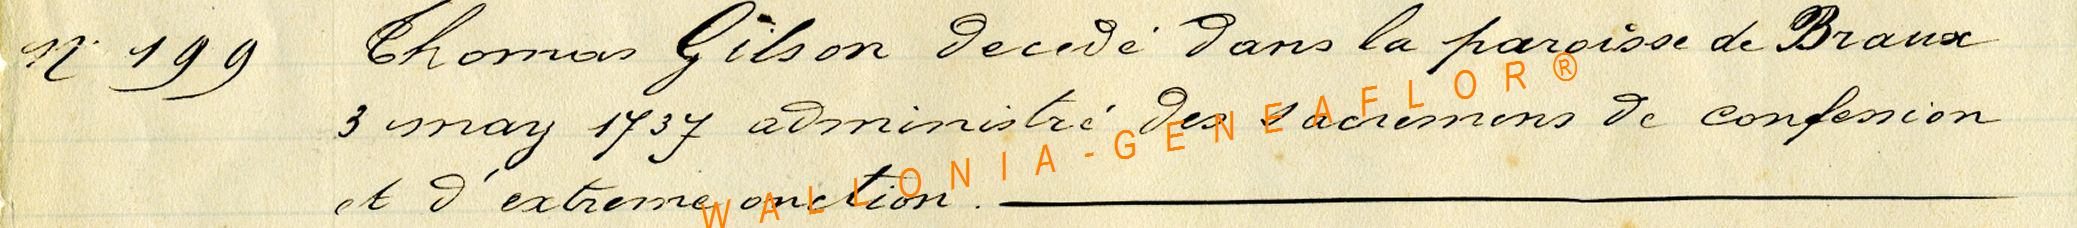 N° 199 Thomas Gilson decedé dans la paroisse de Braux
3 may 1737 administré des sacremens de confession
et d'extreme onction.
WALLONIA-GENEAFLOR®